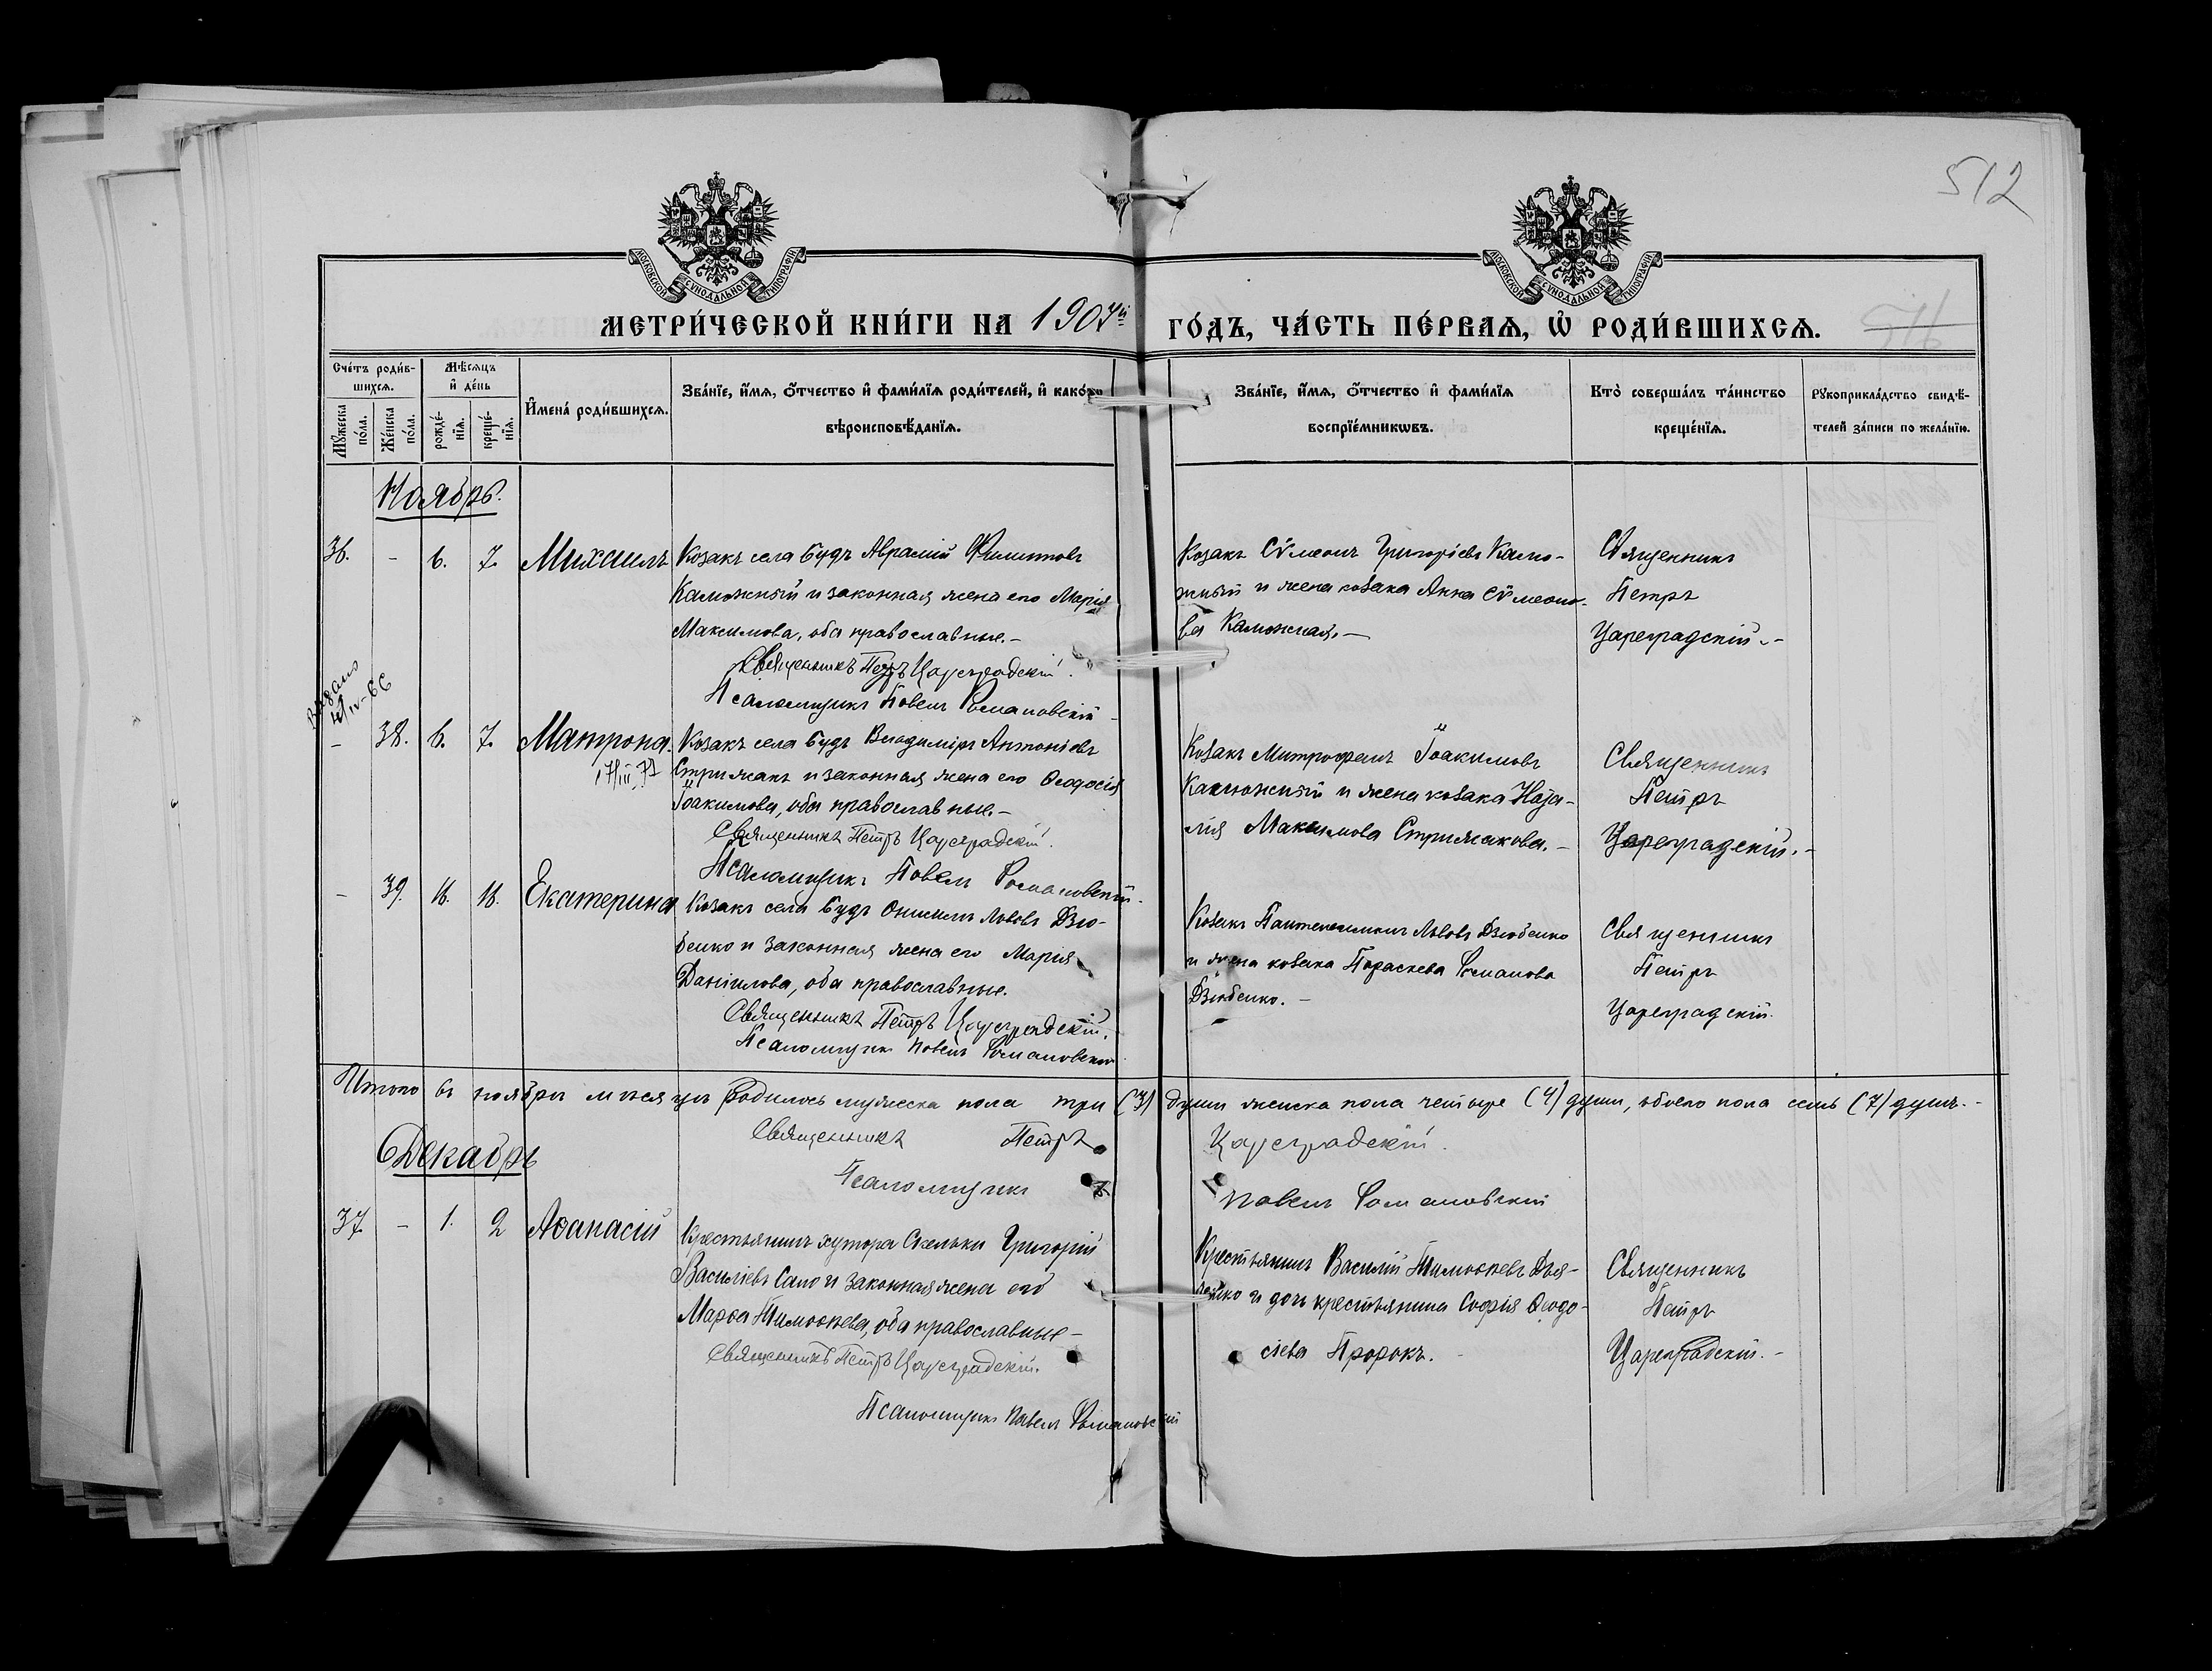 512
МОСКОВСКОЙ СѴНОДАЛЬНОЙ ТИПОГРАФІИ
МОСКОВСКОЙ СѴНОДАЛЬНОЙ ТИПОГРАФІИ
МЕТРИ́ЧЕСКОЙ КНИ́ГИ НА 1907й ГО́ДЪ, ЧА́СТЬ ПЕ́РВАѦ, Ѡ҆ РОДИ́ВШИХСѦ.
Сче́тъ роди́в-
шихсѧ.
Мꙋ́жеска по́ла.
Же́нска по́ла.
Мѣ́сѧцъ и҆ де́нь
рожде́-нїѧ.
креще́-нїѧ.
И҆мена̀ роди́вшихсѧ.
Зва́нїе, и҆́мѧ, ѻ҆́тчество и҆ фами́лїѧ роди́телей, и҆ како́гѡ
вѣроисповѣ́данїѧ.
Зва́нїе, и҆́мѧ, ѻ҆́тчество и҆ фами́лїѧ
воспрїе́мникѡвъ.
Кто̀ соверша́лъ та́инство
креще́нїѧ.
Рꙋкоприкла́дство свидѣ́-
телей за́писи по жела́нїю.
Ноябрь.
36. - 6. 7. Михаилъ
Козакъ села Будъ Аврамій Филиповъ
Каможный и законная жена его Марія
Максимова, оба православные.-
Священникъ Петръ Цареградскій.
Псаломщикъ Павелъ Романовскій
Козакъ Сѵмеонъ Григоріевъ Камо-
жный и жена козака Анна Сѵмеоно-
ва Каможная.-
Священникъ
Петръ
Цареградскій.-
- 38. 6. 7. Матрона.
17/III 77
Козакъ села Будъ Владиміръ Антоніевъ
Стрижакъ и законная жена его Ѳеодосія
Іоакимова, оба православные.-
Священникъ Петръ Цареградскій.
Псаломщикъ Павелъ Романовскій.
Козакъ Митрофанъ Іоакимовъ
Каможный и жена козака Ната-
лія Максимова Стрижакова.-
Священникъ
Петръ
Цареградскій.-
- 39. 18. 18. Екатерина
Козакъ села Будъ Онисимъ Львовъ Дзю-
бенко и законная жена его Марія
Даніилова, оба православные.
Священникъ Петръ Цареградскій.
Псаломщикъ Павелъ Романовскій
Козакъ Пантелеимонъ Львовъ Дзюбенко
и жена козака Параскева Романова
Дзюбенко.-
Священникъ
Петръ
Цареградскій.
Итого въ ноябрѣ мѣсяцѣ родилось мужеска пола три (3) души женска пола четыре (4) души, обоего пола семь (7) душъ.-
Священникъ Петръ Цареградскій.
Псаломщикъ Павелъ Романовскій
Декабрь
37. - 1. 2 Аѳанасій
Крестьянинъ хутора Скельки Григорій
Василіевъ Сало и законная жена его
Марѳа Тимоѳеева, оба православные-
Священникъ Петръ Цареградскій.
Псаломщикъ Павелъ Романовскій
Крестьянинъ Василій Тимоѳеевъ Дья-
ченко и дочь крестьянина Софія Ѳеодо-
сіева Пророкъ.
Священникъ
Петръ
Цареградскій.-